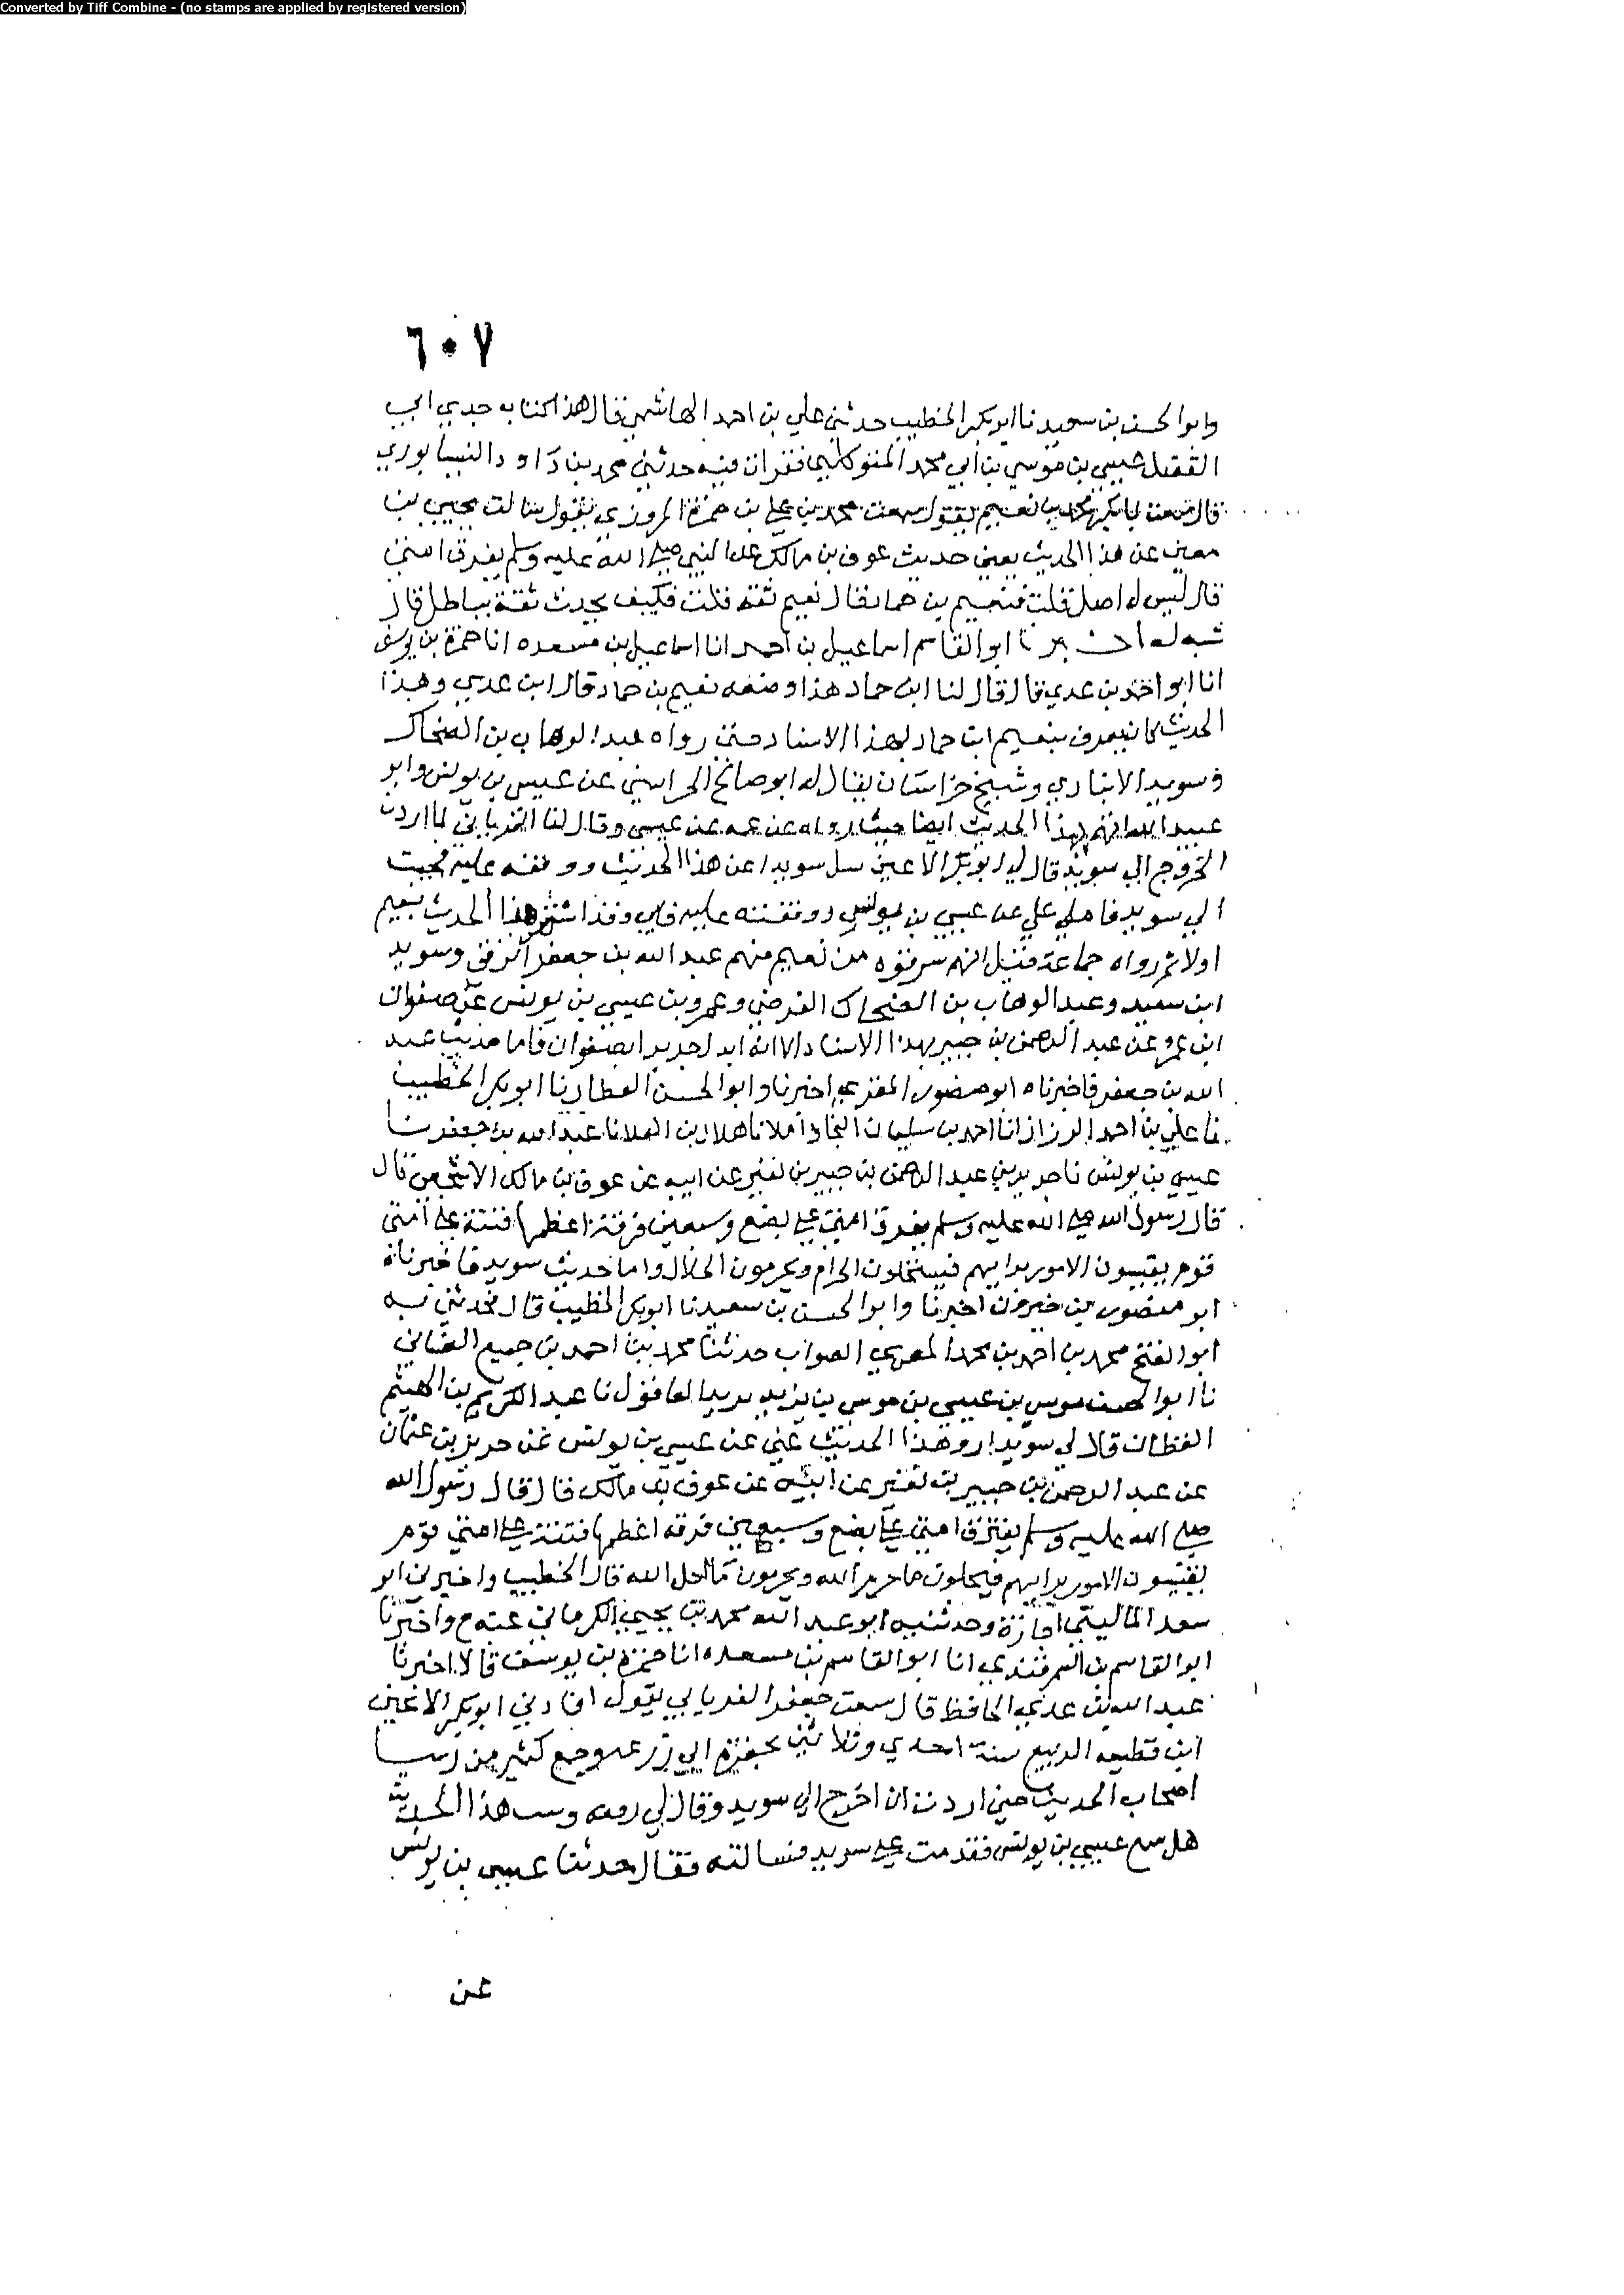 Converted by Tiff Combine - (no stamps are applied by registered version)
٦٠٧
وابو الحسن بن سعيد نا ابو بكر الخطيب حدثني علي بن احمد الهاشمي قال هذا كتاب جدي ابي
الفضل عيسي بن موسي بن ابي محمد المتوكل فقرات فيه حدثني محمد بن داود النيسابوري
قال سمعت ابا بكر محمد بن نعيم يقول سمعت محمد بن علي بن حمزة المروزي يقول سالت يحيي بن
معين عن هذا الحديث يعني حديث عوف بن مالك عن النبي صلي الله عليه وسلم يفترق امتي
قال ليس له اصل قلت فنعيم بن حماد قال نعيم ثقة قلت فكيف يحدث ثقة بباطل قال
شبه له اخبرنا ابو القاسم اسماعيل بن احمد انا اسماعيل بن مسعده انا حمزة بن يوسف
انا ابو احمد بن عدي قال قال لنا ابن حماد هذا وضعه نعيم بن حماد قال ابن عدي وهذا
الحديث كان يعرف بنعيم ابن حماد بهذا الاسناد حتي رواه عبد الوهاب بن الضحاك
وسويد الانباري وشيخ خراسان يقال له ابو صالح الخراسني عن عيسي بن يونس وابو
عبيد الله اتهم بهذا الحديث ايضا حيث رواه عن عمه عن عيسي وقال لنا الفريابي لما اردت
الخروج الي سويد قال لي ابو بكر الاعين سل سويدا عن هذا الحديث ووقفه عليه فجيت
الي سويد فاملي علي عن عيسي بن يونس ووقفته عليه فابي وقد اشتهر هذا الحديث بنعيم
اولا ثم رواه جماعة فقيل انهم سرقوه من نعيم منهم عبد الله بن جعفر الرقي وسويد
ابن سعيد وعبد الوهاب بن الضحاك العرضي وعمرو بن عيسي بن يونس عن صفوان
ابن عمرو عن عبد الرحمن بن جبير بهذا الاسناد الا انه ابدل جرير ابصفوان فاما حديث عبد
الله بن جعفر فاخبرناه ابو منصور المقري اخبرنا وابو الحسن العطار نا ابو بكر الخطيب
نا علي بن احمد الرزاز انا احمد بن سليمان النجاد املا نا هلال بن العلا نا عبد الله بن جعفر نا
عيسي بن يونس نا جرير بن عبد الرحمن بن جبير بن نفير عن ابيه عن عوف بن مالك الاشجعي قال
قال رسول الله صلي الله عليه وسلم يفترق امتي علي بضع وسبعين فرقة اعظمها فتنة علي امتي
قوم يقيسون الامور برايهم فيستحلون الحرام ويحرمون الحلال واما حديث سويد فاخبرناه
ابو منصور بن خيرون اخبرنا وابو الحسن بن سعيد نا ابو بكر الخطيب قال فحدثني به
ابو الفتح محمد بن احمد بن محمد المصري الصواب حدثنا محمد بن احمد بن جميع الغساني
نا ابو الحسن موسي بن عيسي بن موسي بن يزيد بدير العاقول نا عبد الكريم بن الهيثم
القطان قال لي سويد ارو هذا الحديث عني عن عيسي بن يونس عن حريز بن عثمان
عن عبد الرحمن بن جبير بن نفير عن ابيه عن عوف بن مالك قال قال رسول الله
صلي الله عليه وسلم يفترق امتي علي بضع وسبعين فرقه اعظمها فتنة علي امتي قوم
يقيسون الامور برايهم فيحلون ما حرم الله ويحرمون ما احل الله قال الخطيب واخبرني ابو
سعد الماليني اجازة وحدثنيه ابو عبد الله محمد بن يحيي الكرماني عنه ح واخبرنا
ابو القاسم بن السمرقندي انا ابو القاسم بن مسعده انا حمزة بن يوسف قالا اخبرنا
عبد الله بن عدي الحافظ قال سمعت جعفر الفريابي يقول افادني ابو بكر الاعين
ابن قطيعه الربيع سنة احدي وثلاثين بحضرة ابي زرعه وجمع كثير من روسا
اصحاب الحديث حين اردت ان اخرج الي سويد وقال لي وقفه وسب هذا الحديث
هل سمع عيسي بن يونس فقدمت علي سويد فسالته فقال حدثنا عيسي بن يونس
عن